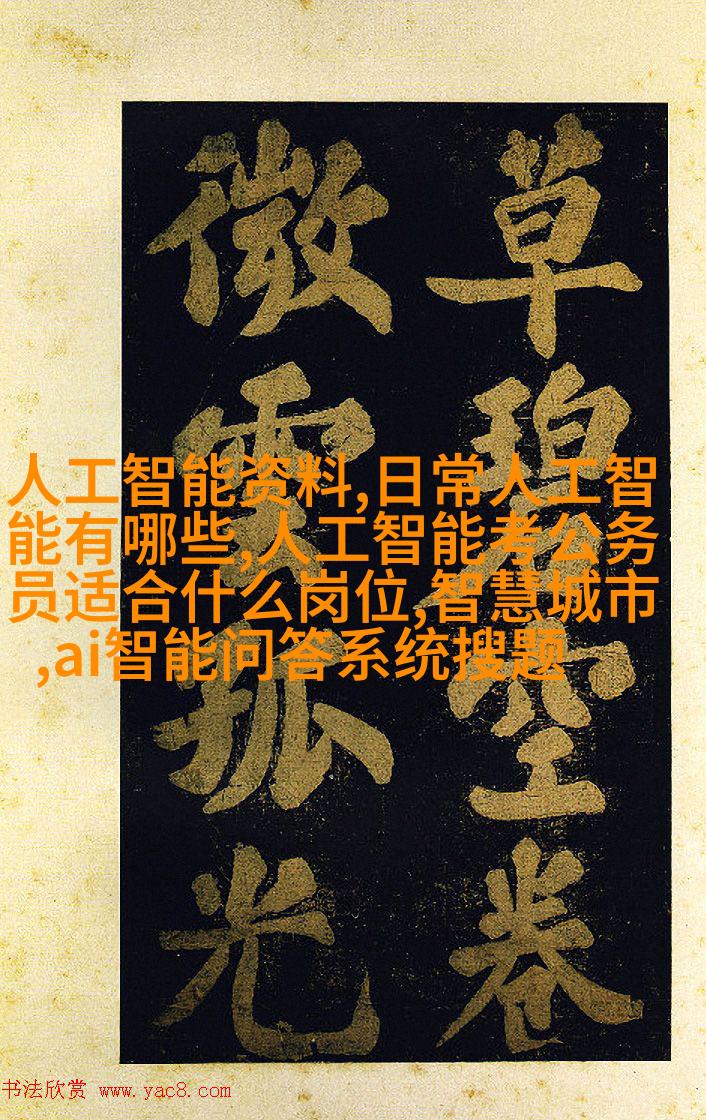 草碧空卷
微雲孤光
人工智能资料,日常人工智
能有哪些,人工智能考公务
员适合什么岗位,智慧城市
,ai智能问答系统搜题
书法欣赏 www.yac8.com